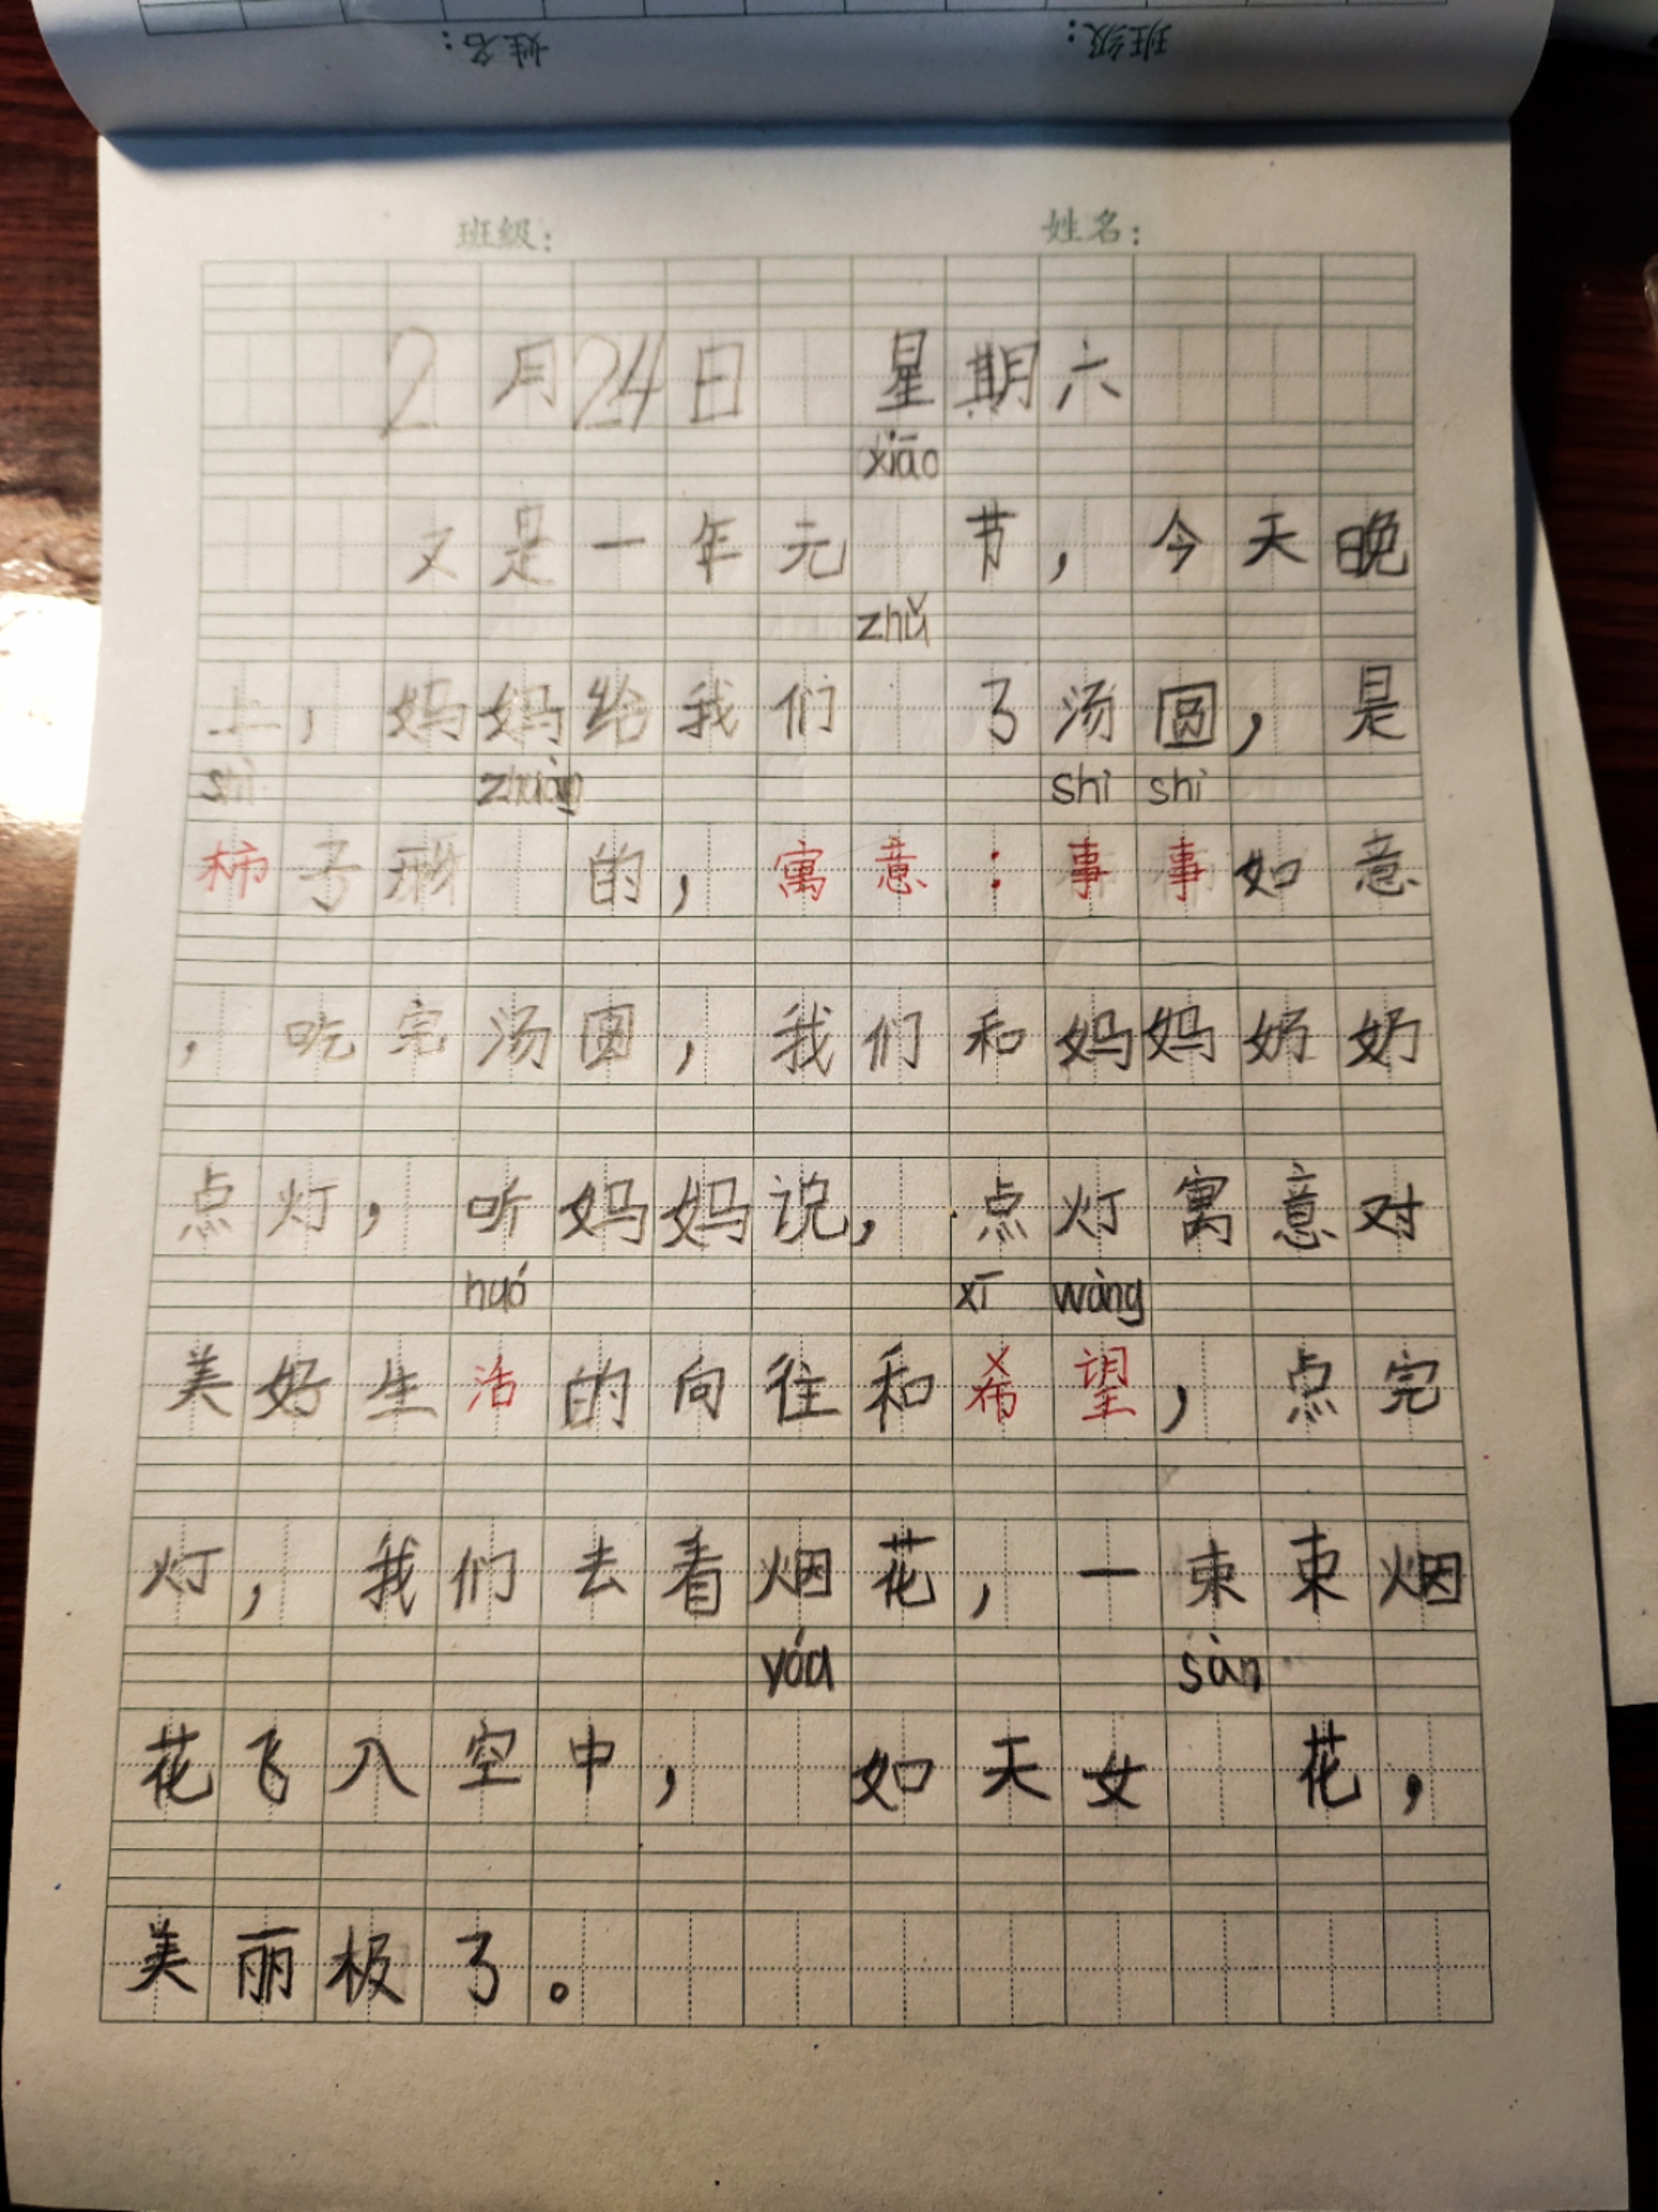 姓名： 班级：
班级： 姓名：
2月24日 星期六
xiāo
又是一年元 节，今天晚
zhǔ
上，妈妈给我们 了汤圆，是
shì zhuàng shì shì
柿子形 的，寓意：事事如意
，吃完汤圆，我们和妈妈奶奶
点灯，听妈妈说，点灯寓意对
huó xī wàng
美好生活的向往和希望，点完
灯，我们去看烟花，一束束烟
yóu sàn
花飞入空中， 如天女 花，
美丽极了。